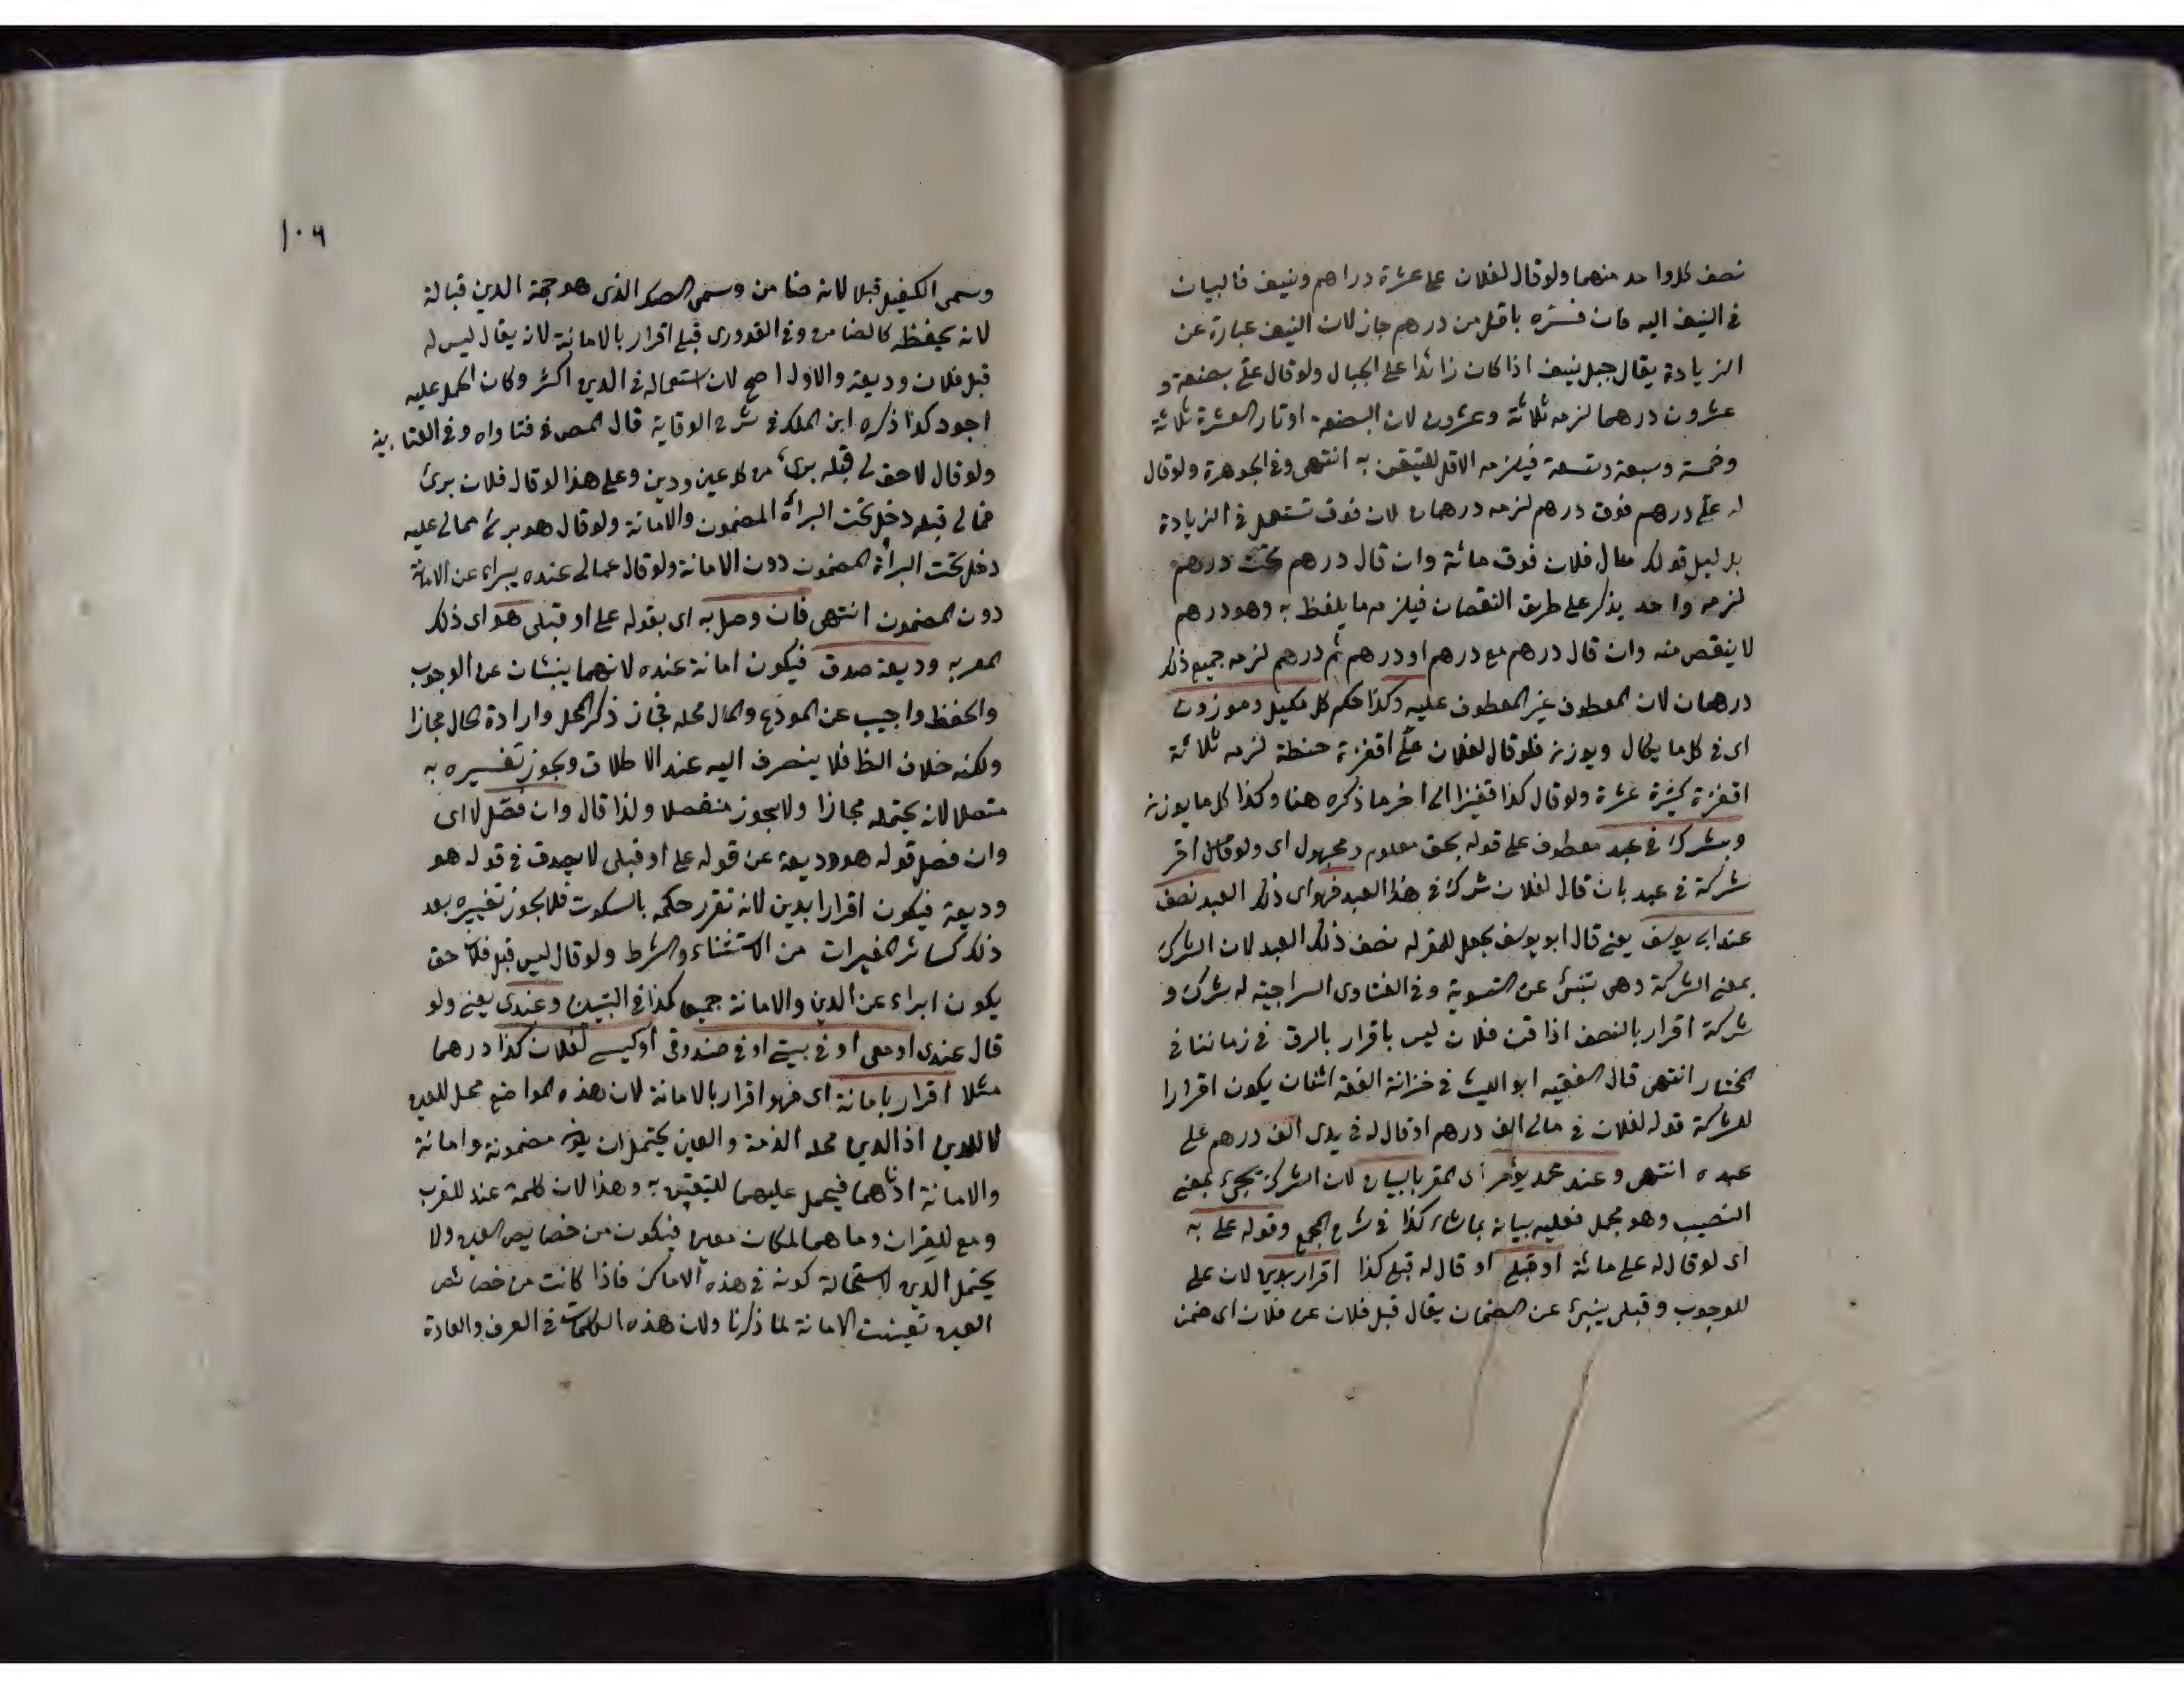 نصف كل واحد منهما ولو قال لفلان على عشرة دراهم ونيف فالبيان
فى النيف اليه فان فسره باقل من درهم جاز لان النيف عبارة عن
الزيادة يقال جبل نيف اذا كان زائدا على الجبال ولو قال علىّ بضعة و
عشرون درهما لزمه ثلاثة وعشرون لان البضعة اوتار العشرة ثلاثة
وخمسة وسبعة وتسعة فيلزمه الاقل للتيقن به انتهى وفى الجوهرة ولو قال
له علىّ درهم فوق درهم لزمه درهمان لان فوق تستعمل فى الزيادة
بدليل قولك مال فلان فوق مائة وان قال درهم تحت درهم
لزمه واحد يذكر على طريق النقصان فيلزمه ما يلفظ به وهو درهم
لا ينقص منه وان قال درهم مع درهم او درهم ثم درهم لزمه جميع ذلك
درهمان لان المعطوف غير المعطوف عليه وكذا حكم كل مكيل وموزون
اى فى كل ما يكال ويوزن فلو قال لفلان علىّ اقفزة حنطة لزمه ثلاثة
اقفزة كثيرة عشرة ولو قال كذا قفيزا الى اخر ما ذكره هنا وكذا كل ما يوزن
وبشرك فى عبد معطوف على قوله بحق معلوم ومجهول اى ولو قال اقر
شركة فى عبد بان قال لفلان شرك فى هذا العبد فهو اى ذلك العبد نصف
عند ابى يوسف يعنى قال ابو يوسف يجعل للمقر له نصف ذلك العبد لان الشرك
بمعنى الشركة وهى تنبئ عن التسوية وفى الفتاوى السراجية له شرك و
شركة اقرار بالنصف اذا قن فلان ليس باقرار بالرق فى زماننا فى
المختار انتهى قال الفقيه ابو الليث فى خزانة الفقه اثنان يكون اقرارا
للشركة قوله لفلان فى مالى الف درهم او قال له فى يدى الف درهم على
عبده انتهى وعند محمد يؤمر اى المقر بالبيان لان الشرك يجئ بمعنى
النصيب وهو مجمل فعليه بيانه بما شاء كذا فى شرح المجمع وقوله على به
اى لو قال له على مائة او قبلى او قال له قبلى كذا اقرار بدين لان على
للوجوب وقبلى ينبئ عن الضمان يقال قبل فلان عن فلان اى ضمن
١٠٦
وسمى الكفيل قبيلا لانه ضامن وسمى الصك الذى هو حجة الدين قبالة
لانه يحفظه كالضامن وفى القدورى قبلى اقرار بالامانة لانه يقال ليس له
قبل فلان وديعة والاول اصح لان استعماله فى الدين اكثر وكان الحمل عليه
اجود كذا ذكره ابن الملك فى شرح الوقاية قال المص فى فتاواه وفى العتابية
ولو قال لا حق لى قبله برئ من كل عين ودين وعلى هذا لو قال فلان برئ
مما لى قبله دخل تحت البرأة المضمون والامانة ولو قال هو برئ مما لى عليه
دخل تحت البرأة المضمون دون الامانة ولو قال عما لى عنده يبراء عن الامانة
دون المضمون انتهى فان وصل به اى بقوله على او قبلى هو اى ذلك
المقر به وديعة صدق فيكون امانة عنده لانهما ينبئان عن الوجوب
والحفظ واجب عن المودع والمال محله فجاز ذكر المحل وارادة الحال مجازا
ولكنه خلاف الظ فلا ينصرف اليه عند الاطلاق ويجوز تفسيره به
متصلا لانه يحتمله مجازا ولا يجوز منفصلا ولذا قال وان فصل لا اى
وان فصل قوله هو وديعة عن قوله على او قبلى لا يصدق فى قوله هو
وديعة فيكون اقرارا بدين لانه تقرر حكمه بالسكوت فلا يجوز تغييره بعد
ذلك كسائر المغيرات من الاستثناء والشرط ولو قال ليس قبل فلان حق
يكون ابراء عن الدين والامانة جميعا كذا فى التبيين وعندى يعنى ولو
قال عندى او معى او فى بيتى او فى صندوقى او كيسى لفلان كذا درهما
مثلا اقرار بامانة اى فهو اقرار بالامانة لان هذه المواضع محل للعين
لا للدين اذ الدين محله الذمة والعين يحتمل ان يكون مضمونة وامانة
والامانة ادناهما فيحمل عليهما للتيقن به وهذا لان كلمة عند للقرب
ومع للقران وما هما لمكان معين فيكون من خصايص العين ولا
يحتمل الدين لاستحالة كونه فى هذه الاماكن فاذا كانت من خصائص
العين تعينت الامانة لما ذكرنا ولان هذه الكلمات فى العرف والعادة